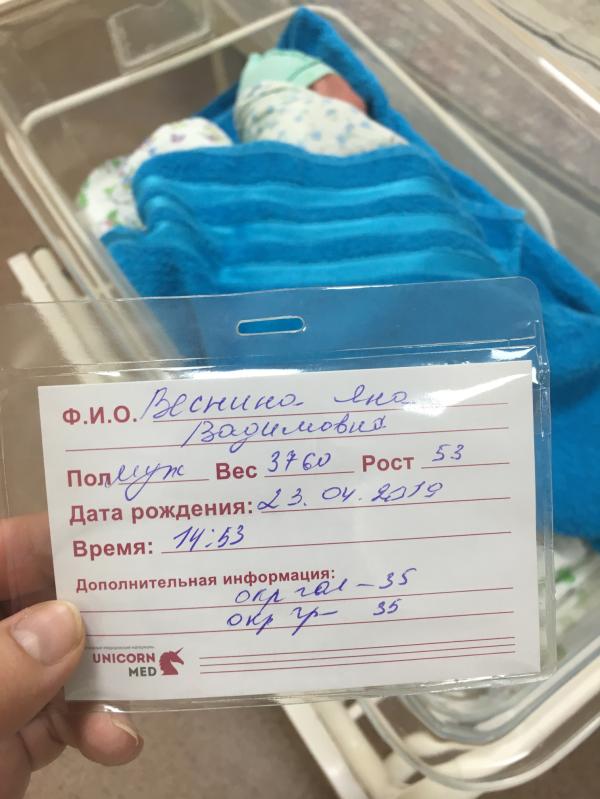 Ф.И.О. Веснина Яна
Вадимовна
Пол муж Вес 3760 Рост 53
Дата рождения: 23.04.2019
Время: 14:53
Дополнительная информация:
окр гол – 35
окр гр – 35
UNICORN
MED